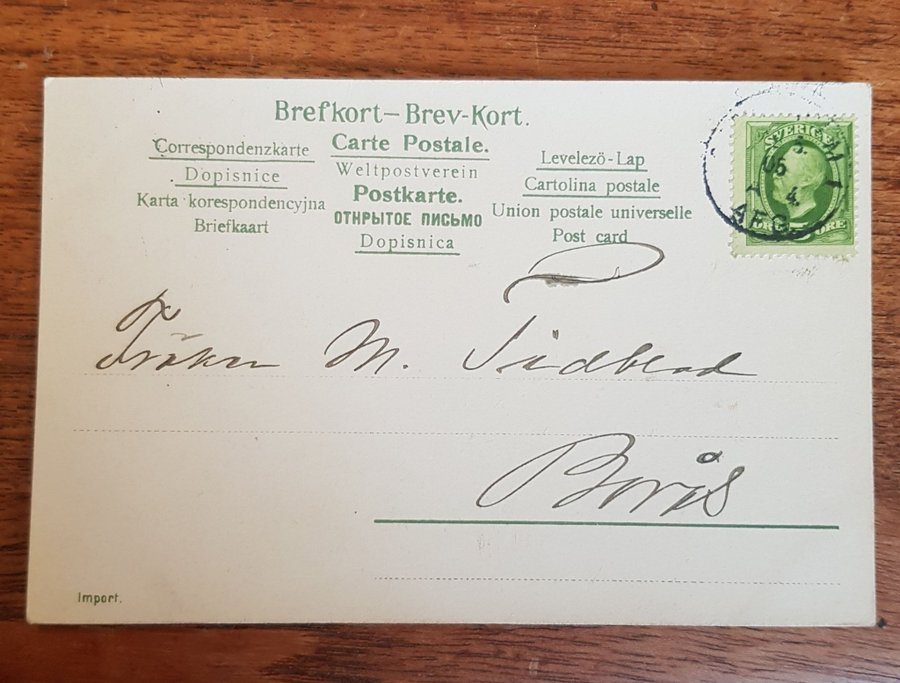 Brefkort—Brev-Kort.
Correspondenzkarte
Dopisnice
Karta korespondencyjna
Briefkaart
Carte Postale.
Weltpostverein
Postkarte.
ОТКРЫТОЕ ПИСЬМО
Dopisnica
Levelezö-Lap
Cartolina postale
Union postale universelle
Post card
SVERIGE
5 ÖRE
05
4
Fröken M. Sidblad
Borås
Import.